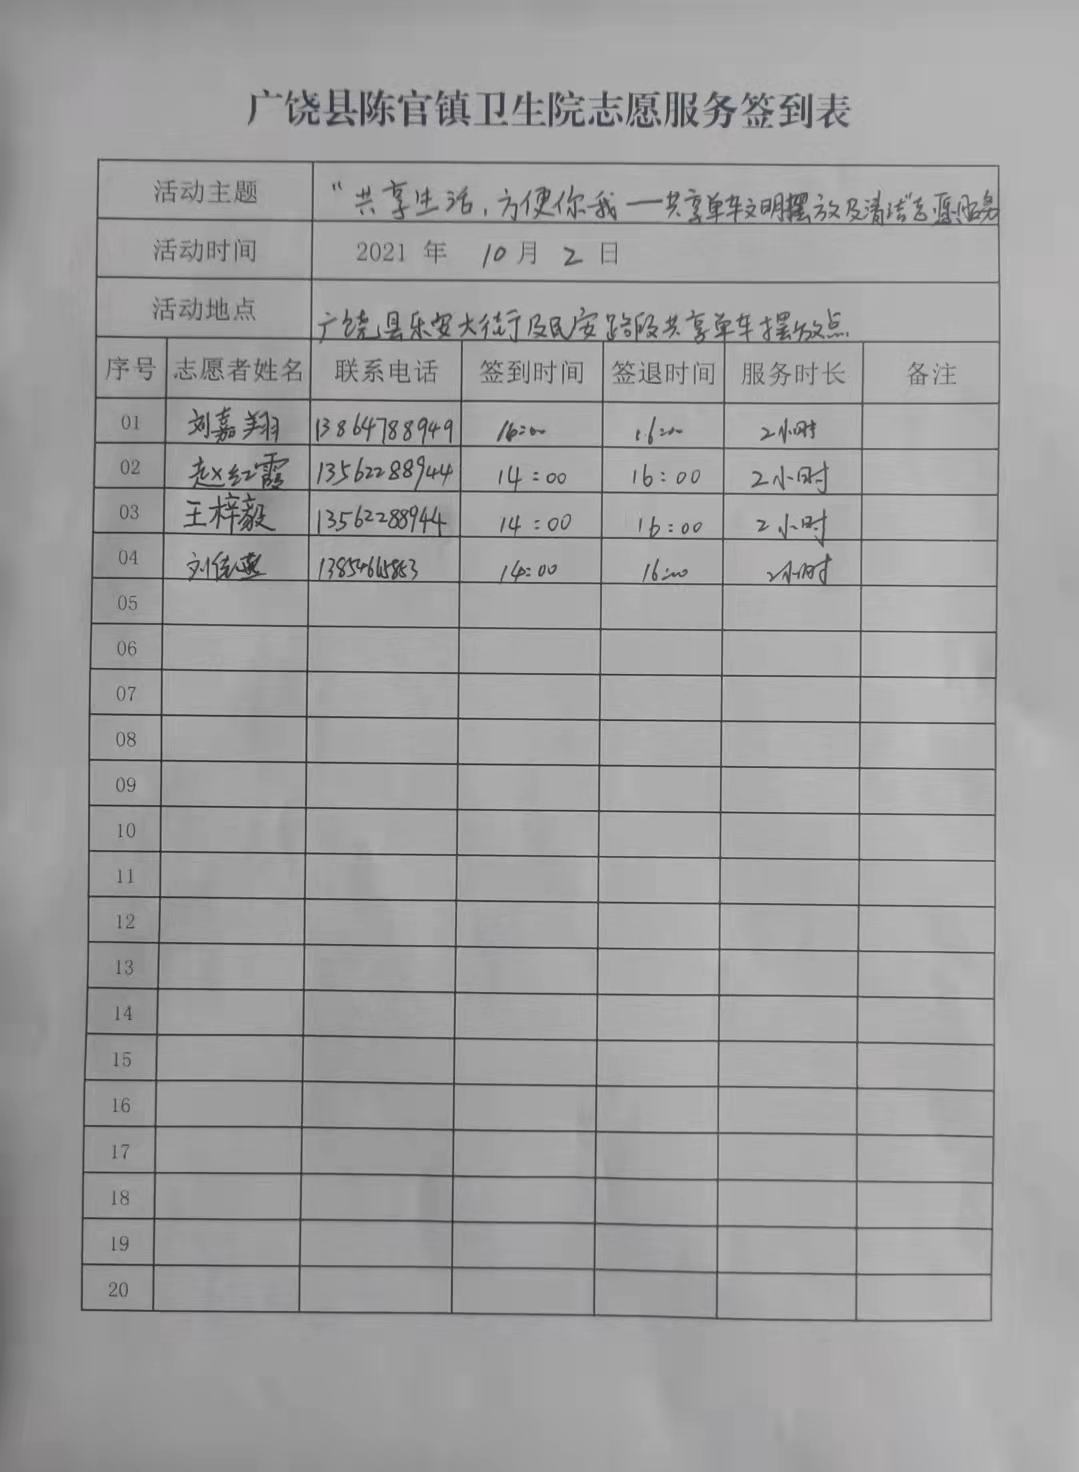 广饶县陈官镇卫生院志愿服务签到表
活动主题 "共享生活,方便你我一共享单车文明摆放及清洁"志愿服务
活动时间 2021 年 10 月 2 日
活动地点 广饶县乐安大街及民安路段共享单车摆放点
序号 志愿者姓名 联系电话 签到时间 签退时间 服务时长 备注
01 刘嘉翔 13864788949 16:00 2小时
02 赵红霞 13562288944 14:00 16:00 2小时
03 王梓毅 13562288944 14:00 16:00 2小时
04 14:00 16:00 2小时
05
06
07
08
09
10
11
12
13
14
15
16
17
18
19
20